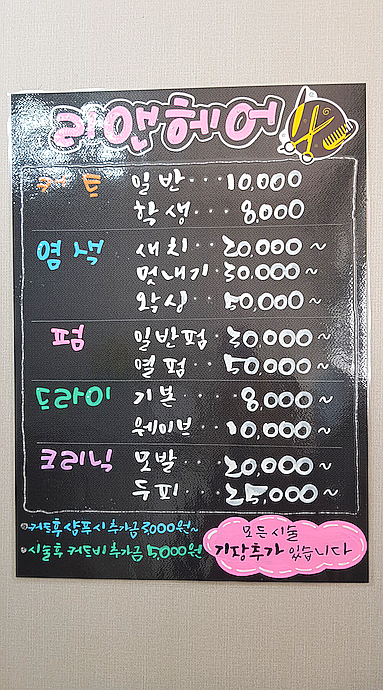 리앤헤어
커트 일반··· 10,000
학생··· 8,000
염색 새치··· 20,000 ~
멋내기· 30,000 ~
왁싱··· 50,000 ~
펌 일반펌· 30,000 ~
열펌··· 50,000 ~
드라이 기본···· 8,000 ~
웨이브· 10,000 ~
크리닉 모발···· 20,000 ~
두피··· 25,000 ~
•커트후 샴푸시 추가금 3,000원~
•시술후 커트비 추가금 5,000원
모든 시술
기장추가 있습니다